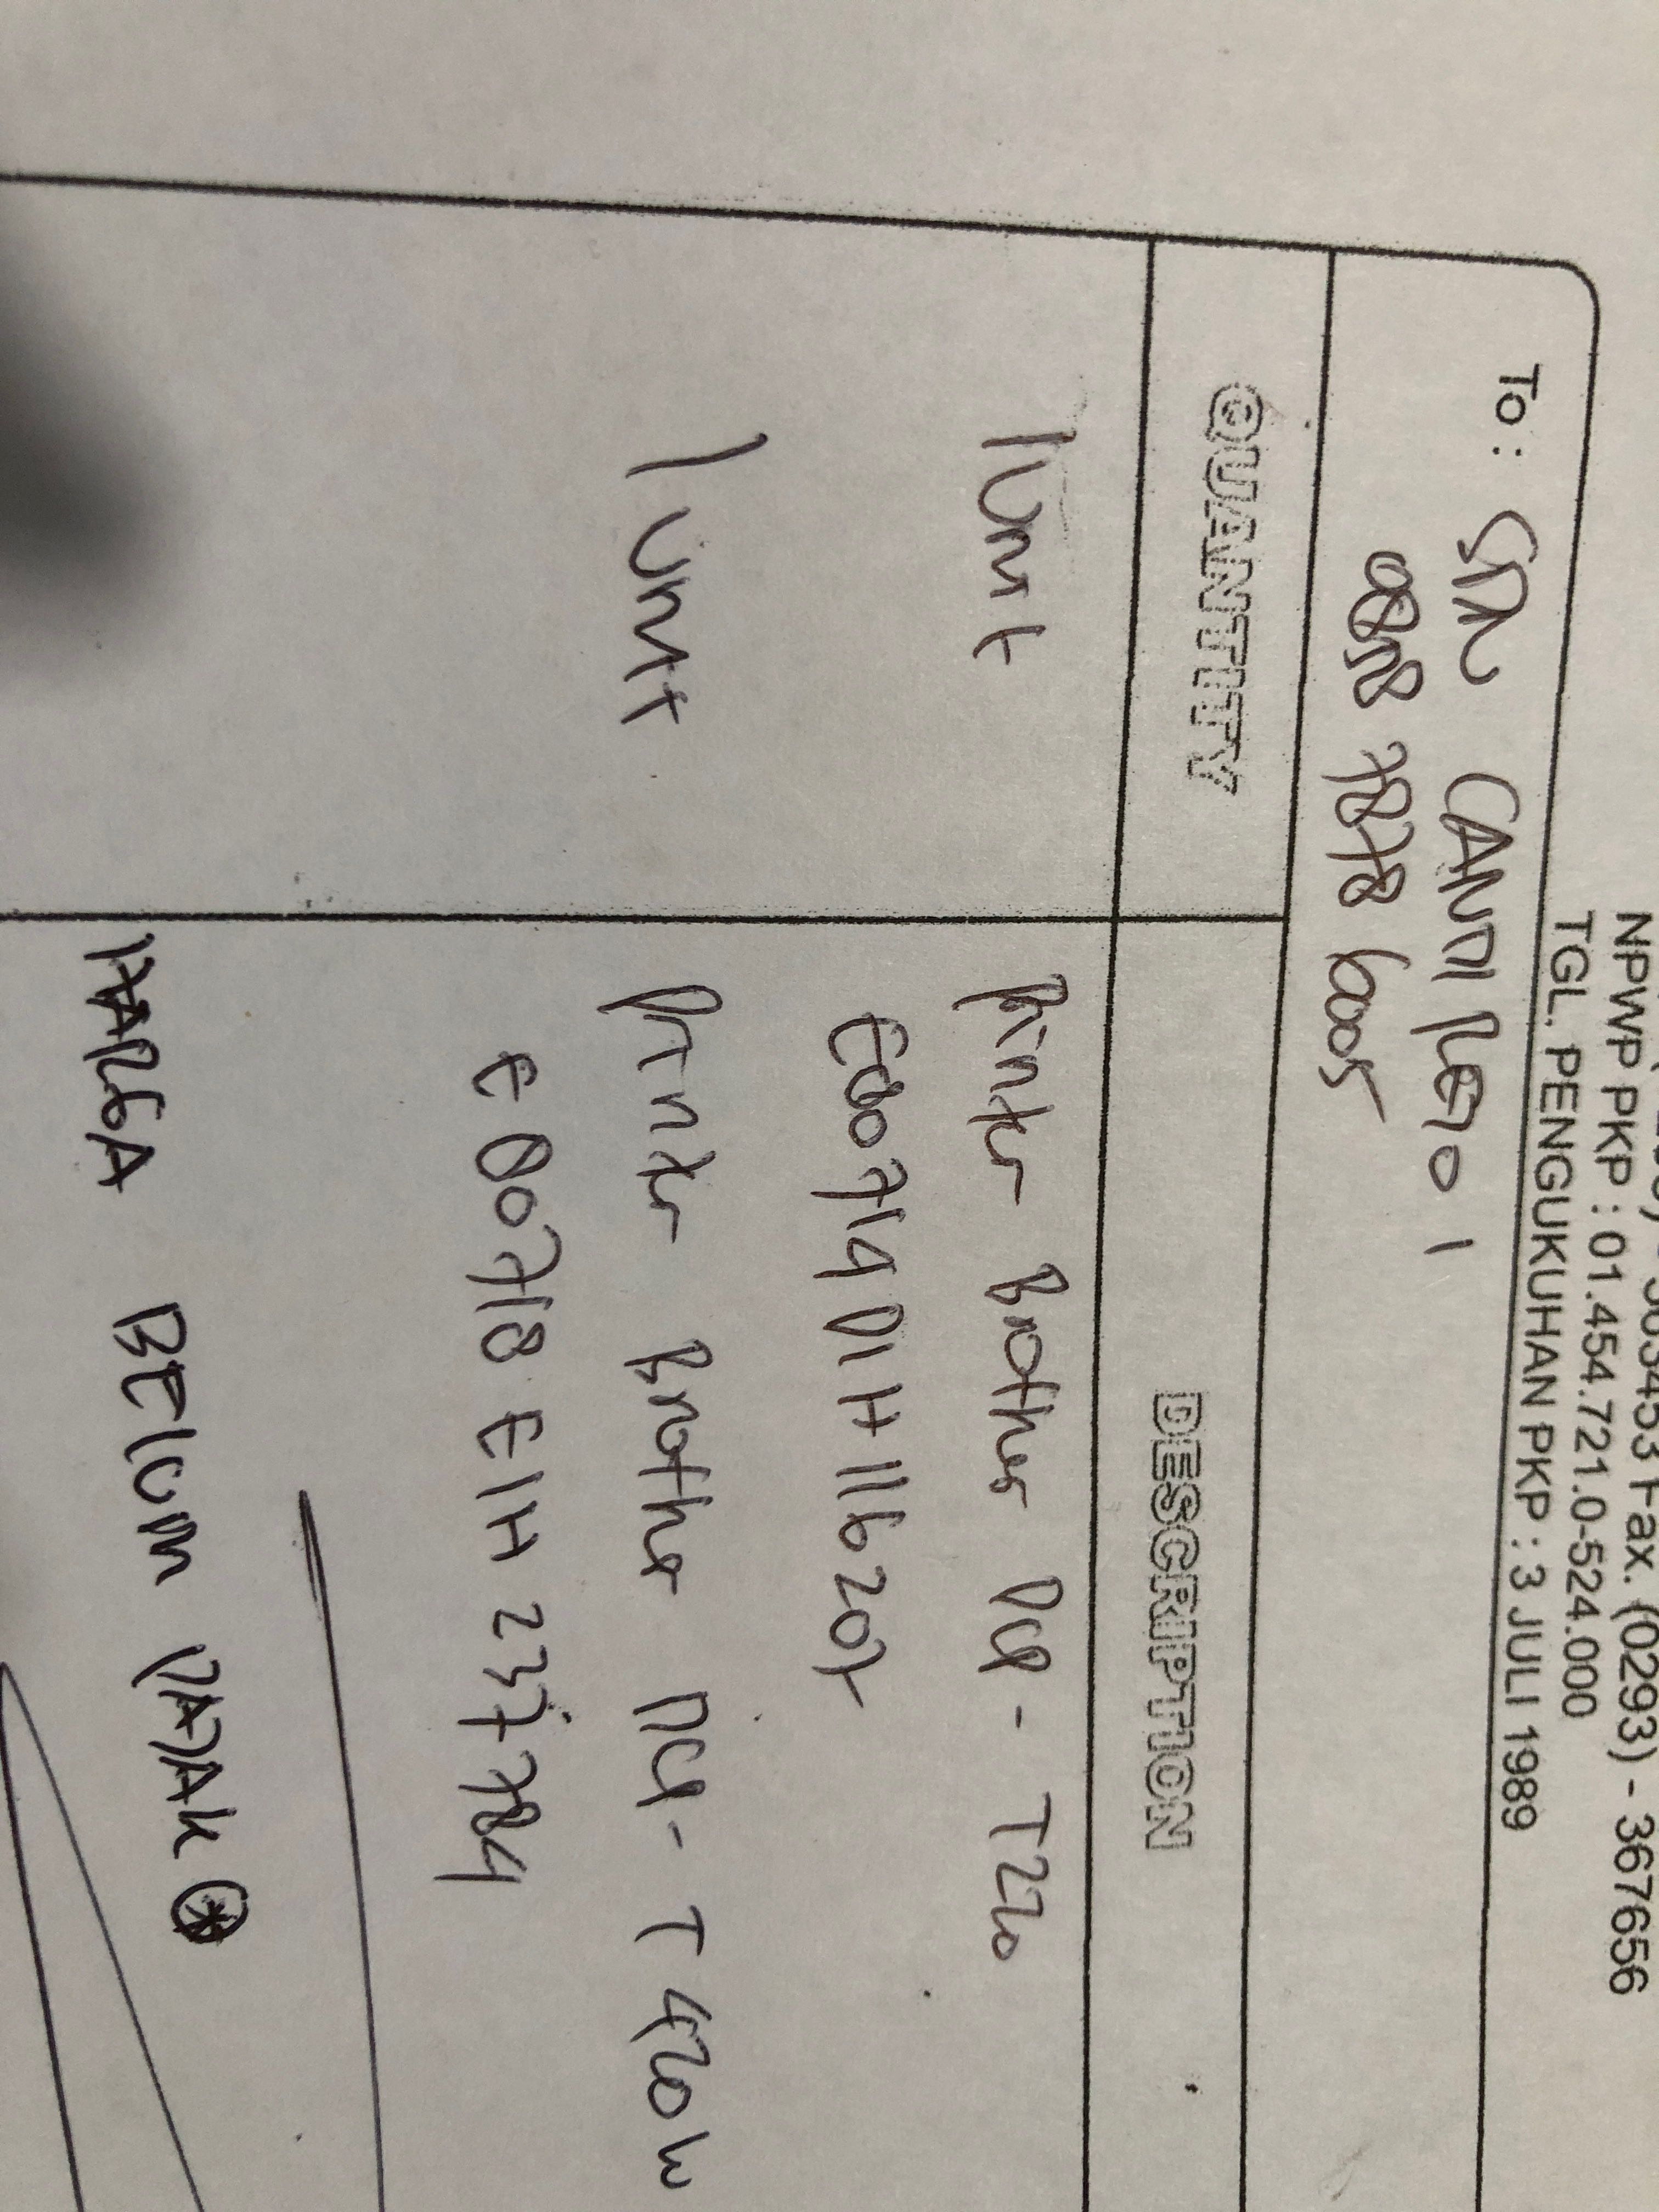 3634453 Fax. (0293) - 367656
NPWP PKP : 01.454.721.0-524.000
TGL. PENGUKUHAN PKP : 3 JULI 1989
To : SDN CANDI RETO 1
0878 7878 6005
QUANTITY DESCRIPTION
1 Unit Printer Brother DCP - T220
E80714D1H116201
1 Unit Printer Brother DCP - T420W
E80718E1H237784
HARGA BELUM PAJAK